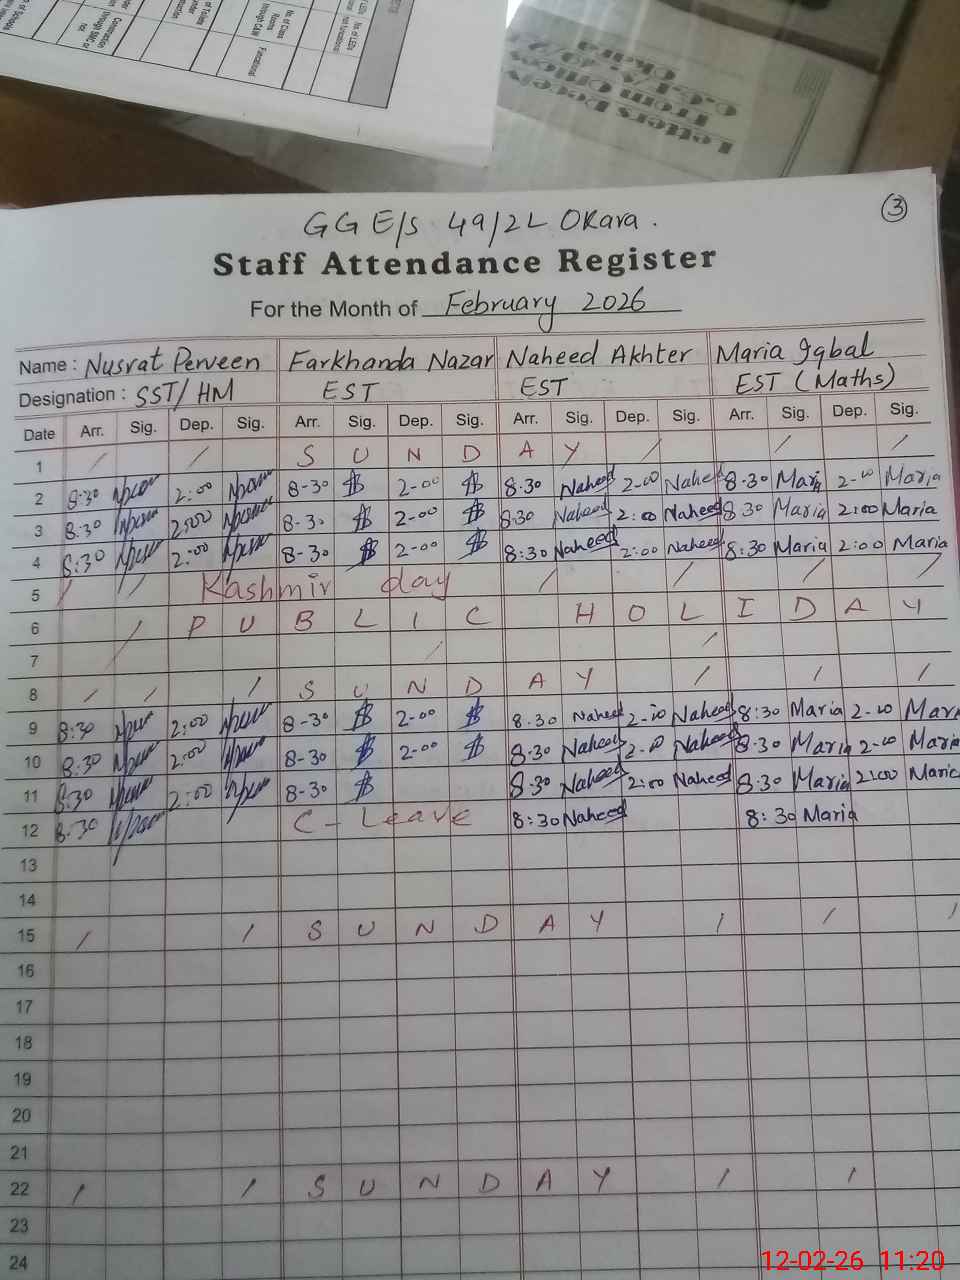 No. of LEDs
not functional
No. of Class
Rooms
through C&W
Functional
Construction
through SMC or
not
Letters Received
From Office
C.E.O
Okara
3
GGE/S 49/2L Okara.
Staff Attendance Register
For the Month of February 2026
Name : Nusrat Perveen Farkhanda Nazar Naheed Akhter Maria Iqbal
Designation : SST/HM EST EST EST (Maths)
Date Arr. Sig. Dep. Sig. Arr. Sig. Dep. Sig. Arr. Sig. Dep. Sig. Arr. Sig. Dep. Sig.
1 / / S U N D A Y / / /
2 8:30 2:00 8-30 2-00 8:30 Naheed 2-00 Naheed 8:30 Maria 2-00 Maria
3 8:30 2:00 8-30 2-00 8:30 Naheed 2:00 Naheed 8:30 Maria 2:00 Maria
4 8:30 2:00 8-30 2-00 8:30 Naheed 2:00 Naheed 8:30 Maria 2:00 Maria
5 / / Kashmir day / / / /
6 / P U B L I C H O L I D A Y
7 / / /
8 / / / S U N D A Y / / /
9 8:30 2:00 8-30 2-00 8:30 Naheed 2-00 Naheed 8:30 Maria 2-00 Maria
10 8:30 2:00 8-30 2-00 8:30 Naheed 2-00 Naheed 8:30 Maria 2-00 Maria
11 8:30 2:00 8-30 8:30 Naheed 2:00 Naheed 8:30 Maria 2:00 Maria
12 8:30 C-Leave 8:30 Naheed 8:30 Maria
13
14
15 / / S U N D A Y / / /
16
17
18
19
20
21
22 / / S U N D A Y / /
23
24
12-02-26 11:20